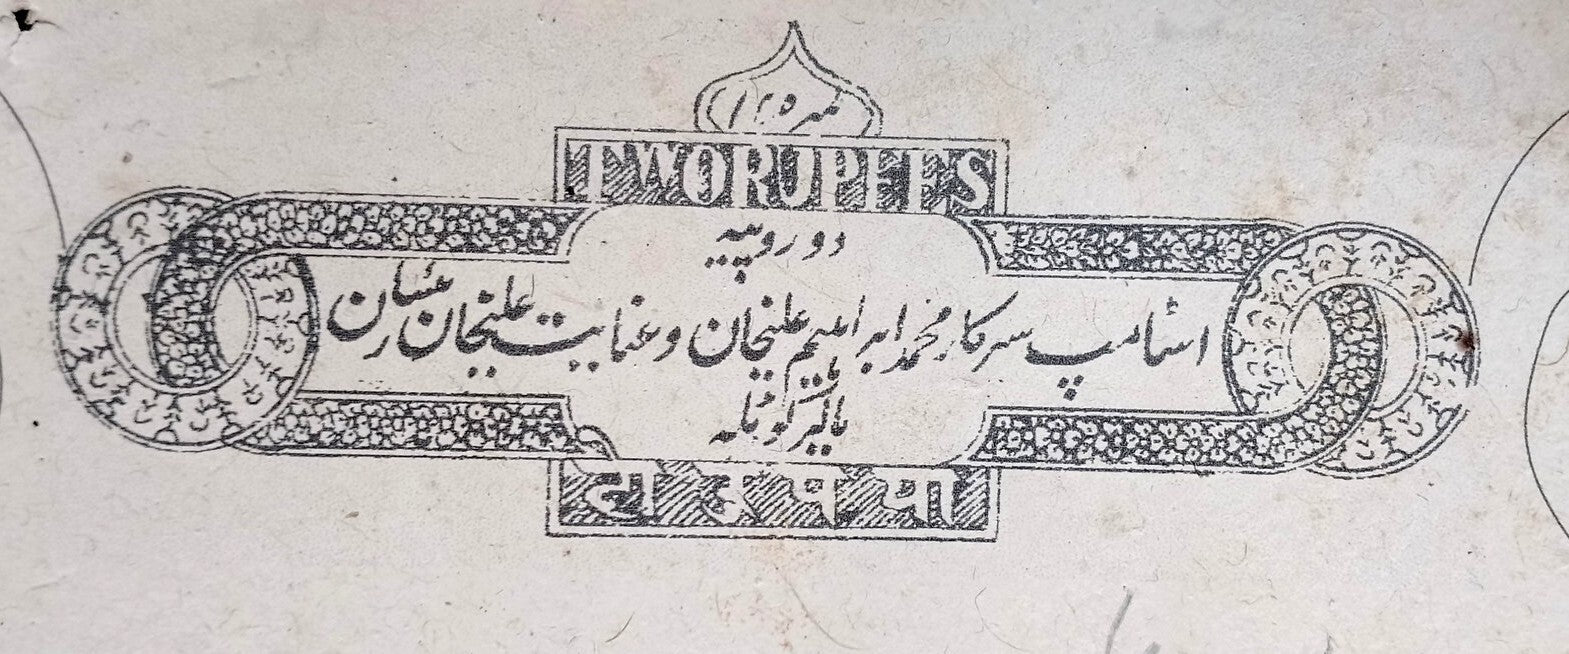 نمبر
TWO RUPEES
دو روپیہ
اسٹامپ سرکار محمد ابراہیم علیخان و عنایت علیخان رئیسان
مالیرکوٹلہ
दो रुपया